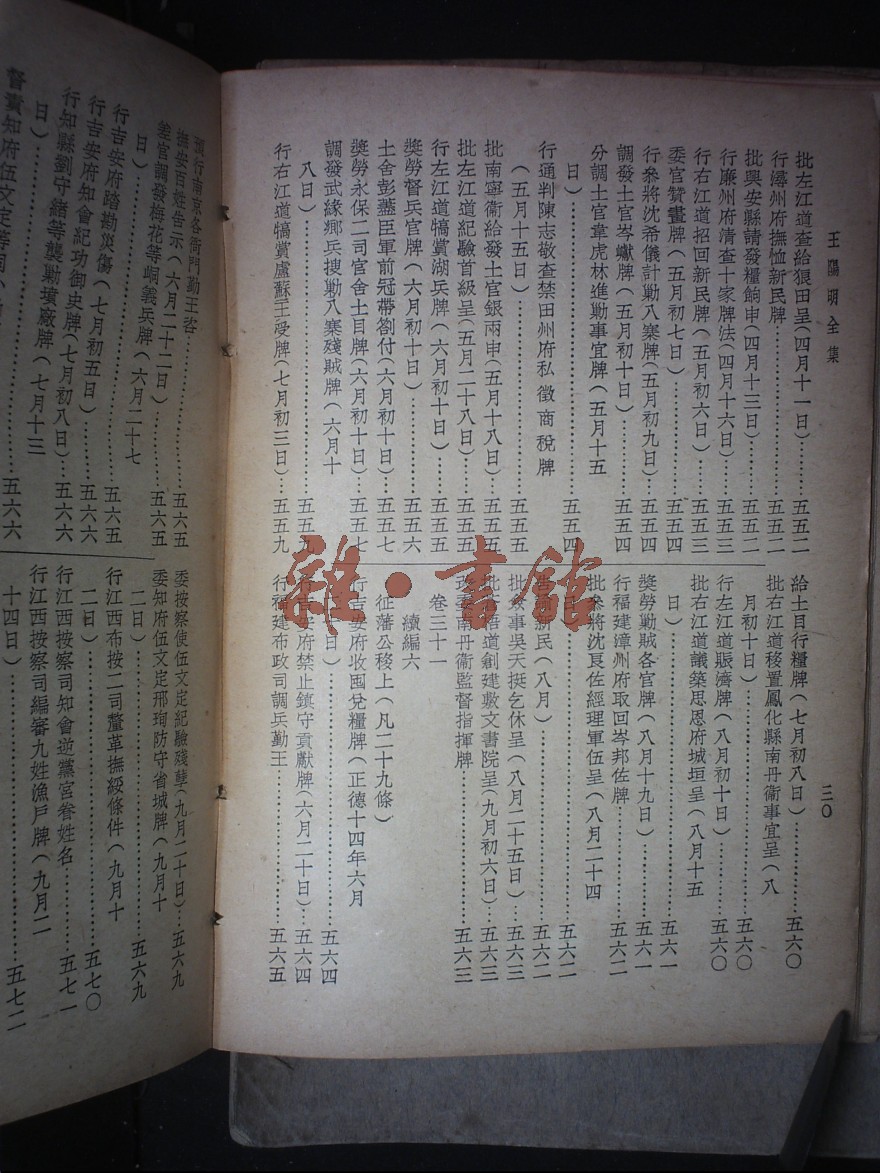 王陽明全集
三〇
批左江道查給狠田呈(四月十一日)…五五二
行潯州府撫恤新民牌……五五二
批興安縣請發糧餉申(四月十三日)…五五二
行廉州府清查十家牌法(四月十六日)…五五三
行右江道招回新民牌(五月初六日)…五五三
委官贊畫牌(五月初七日)……五五四
行參將沈希儀計勦八寨牌(五月初九日)…五五四
調發土官岑瓛牌(五月初十日)……五五四
分調土官韋虎林進勦事宜牌(五月十五
日)……五五四
行通判陳志敬查禁田州府私徵商稅牌
(五月十五日)……五五五
批南寧衛給發土官銀兩申(五月十八日)…五五五
批左江道紀驗首級呈(五月二十八日)…五五五
行左江道犒賞湖兵牌(六月初十日)…五五五
獎勞督兵官牌(六月初十日)……五五六
土舍彭藎臣軍前冠帶劄付(六月初十日)…五五七
獎勞永保二司官舍土目牌(六月初十日)…五五七
調發武緣鄉兵搜勦八寨殘賊牌(六月十
八日)……五五九
行右江道犒賞盧蘇王受牌(七月初三日)…五五九
給土目行糧牌(七月初八日)……五六〇
批右江道移置鳳化縣南丹衛事宜呈(八
月初十日)……五六〇
行左江道賑濟牌(八月初十日)……五六〇
批右江道議築思恩府城垣呈(八月十五
日)……五六一
獎勞勦賊各官牌(八月十九日)……五六一
行福建漳州府取回岑邦佐牌……五六二
批參將沈良佐經理軍伍呈(八月二十四
日)……五六二
告諭新民(八月)……五六二
批僉事吳天挺乞休呈(八月二十五日)…五六三
批梧道創建敷文書院呈(九月初六日)…五六三
改委南丹衛監督指揮牌……五六三
卷三十一
續編六
征藩公移上(凡二十九條)
行吉安府收囤兌糧牌(正德十四年六月
日)……五六四
行吉安府禁止鎮守貢獻牌(六月二十日)…五六四
行福建布政司調兵勤王……五六五
預行南京各衙門勤王咨……五六五
撫安百姓告示(六月二十二日)……五六五
差官調發梅花等峒義兵牌(六月二十七
日)……五六五
行吉安府踏勘災傷(七月初五日)……五六五
行吉安府知會紀功御史牌(七月初八日)…五六六
行知縣劉守緒等襲勦墳廠牌(七月十三
日)……五六六
督責知府伍文定等
委按察使伍文定紀驗殘孽(九月二十日)…五六九
委知府伍文定邢珣防守省城牌(九月十
二日)……五六九
行江西布按二司釐革撫綏條件(九月十
二日)……五七〇
行江西按察司知會逆黨宮眷姓名……五七一
行江西按察司編審九姓漁戶牌(九月二
十四日)……五七二
雜·書館